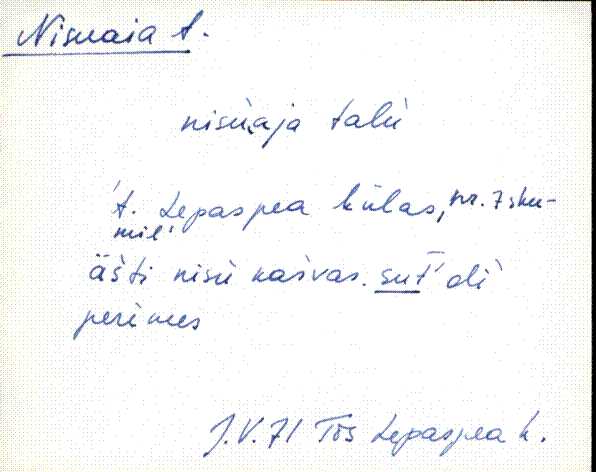 Nisuaia t.
nisu̬aja talu
t. Lepaspea külas, nr. 7
mil
äšti nisu kašvas. sut oli
perimes
J.V. 71 Tõs Lepaspea k.